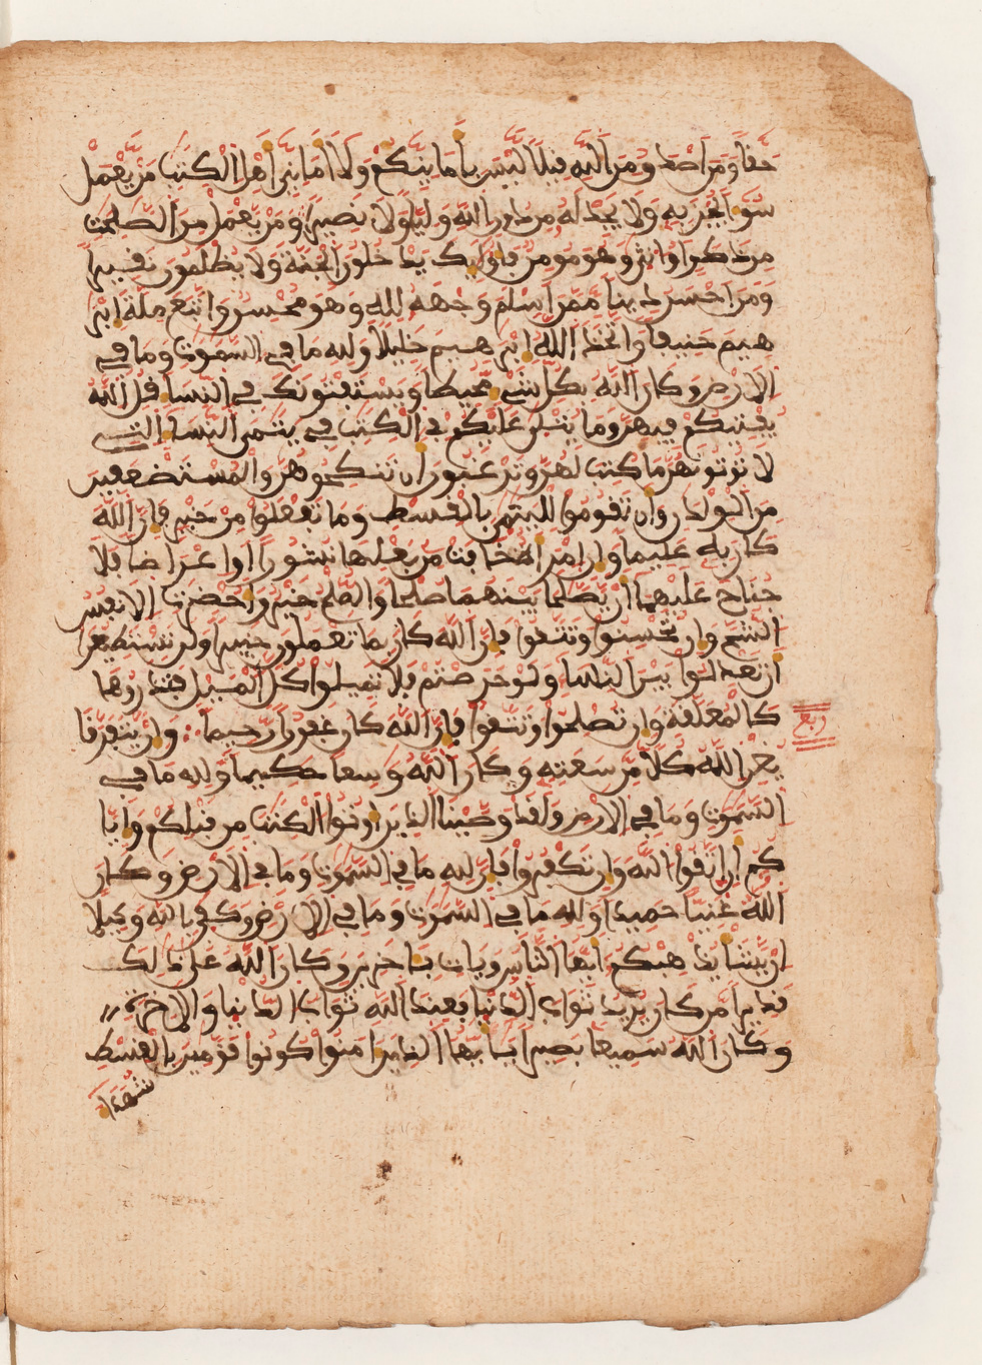 حقا ومن اصدق من الله قيلا ليس بامانيكم ولا امانى اهل الكتب من يعمل
سوءا يجز به ولا يجد له من دون الله وليا ولا نصيرا ومن يعمل من الصلحت
من ذكر او انثى وهو مومن فاوليك يدخلون الجنة ولا يظلمون نقيرا
ومن احسن دينا ممن اسلم وجهه لله وهو محسن واتبع ملة ابر
هيم حنيفا واتخذ الله ابرهيم خليلا ولله ما في السموت وما في
الارض وكان الله بكل شيء محيطا ويستفتونك في النساء قل الله
يفتيكم فيهن وما يتلى عليكم في الكتب في يتمى النساء التي
لا توتونهن ما كتب لهن وترغبون ان تنكحوهن والمستضعفين
من الولدن وان تقوموا لليتمى بالقسط وما تفعلوا من خير فان الله
كان به عليما وان امراة خافت من بعلها نشوزا او اعراضا فلا
جناح عليهما ان يصلحا بينهما صلحا والصلح خير واحضرت الانفس
الشح وان تحسنوا وتتقوا فان الله كان بما تعملون خبيرا ولن تستطيعوا
ان تعدلوا بين النساء ولو حرصتم فلا تميلوا كل الميل فتذروها
كالمعلقة وان تصلحوا وتتقوا فان الله كان غفورا رحيما وان يتفرقا
ربع
يغن الله كلا من سعته وكان الله وسعا حكيما ولله ما في
السموت وما في الارض ولقد وصينا الذين اوتوا الكتب من قبلكم وايا
كم ان اتقوا الله وان تكفروا فان لله ما في السموت وما في الارض وكان
الله غنيا حميدا ولله ما في السموت وما في الارض وكفى بالله وكيلا
ان يشا يذهبكم ايها الناس ويات باخرين وكان الله على ذلك
قديرا من كان يريد ثواب الدنيا فعند الله ثواب الدنيا والاخرة
وكان الله سميعا بصيرا يايها الذين امنوا كونوا قومين بالقسط
شهداء